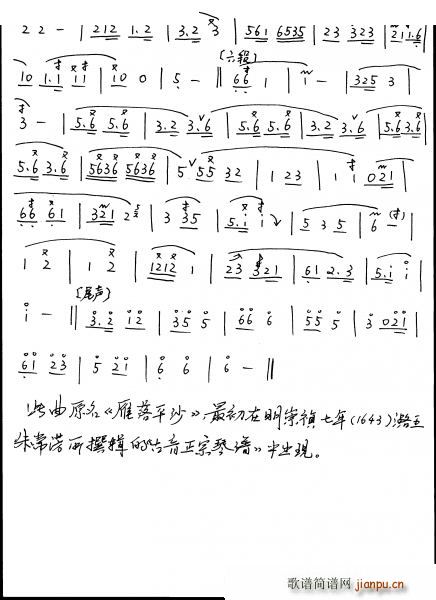 2 2 - | 2 1 2 1. 2 | 3. 2 3 | 5 6 1 6 5 3 5 | 2 3 3 2 3 | 2 1 1. 6
1 0 1. 1 1 1 | 1 0 0 | 5 - || (六段) 6 6 1 | 1 - | 3 2 5 3 |
3 - | 5. 6 5. 6 | 3. 2 3. 6 | 5. 6 5. 6 | 3. 2 3. 6 | 5. 6 3. 6
5. 6 3. 6 | 5 6 3 6 5 6 3 6 | 5 5 5 3 2 | 1 2 3 | 1 1 0 2 1 |
6 6 6 1 | 3 2 1 2 | 3 3 5 | 5. 1 1 | 5 3 5 | 6 - |
1 2 | 1 2 | 1 2 1 2 1 | 2 3 3 2 1 | 6 1 2. 3 | 5. 1 1 |
1 - || [尾声] 3. 2 1 2 | 3 5 5 | 6 6 6 | 5 5 5 | 3 0 2 1 |
6 1 2 3 | 5 2 1 | 6 6 | 6 - ||
此曲原名《雁落平沙》,最初在明崇祯七年(1643)潞王
朱常淓所撰辑的《古音正宗琴谱》中出现。
歌谱简谱网
www.jianpu.cn